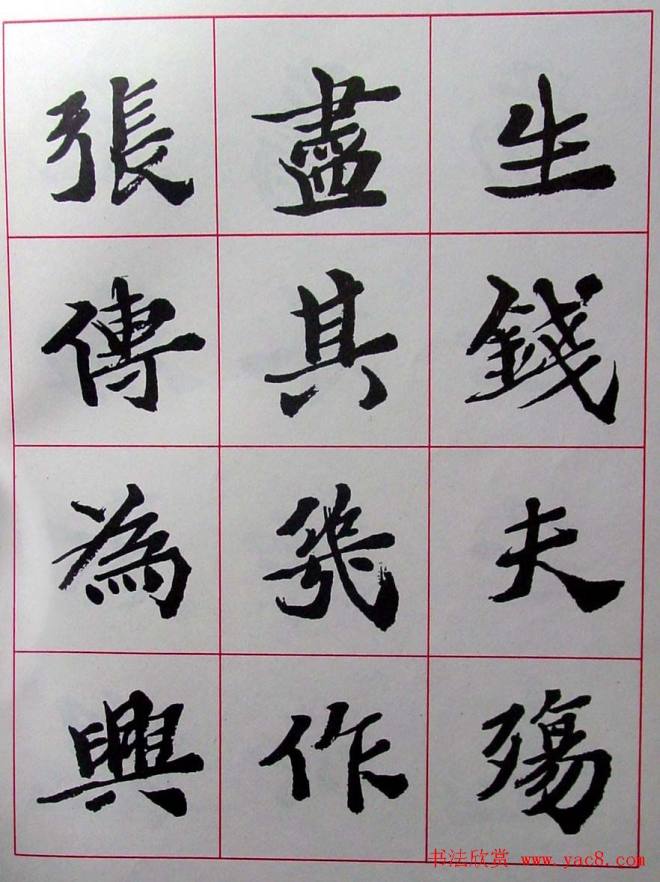 生錢夫殤
盡其幾作
張傳為興
书法欣赏 www.yac8.com